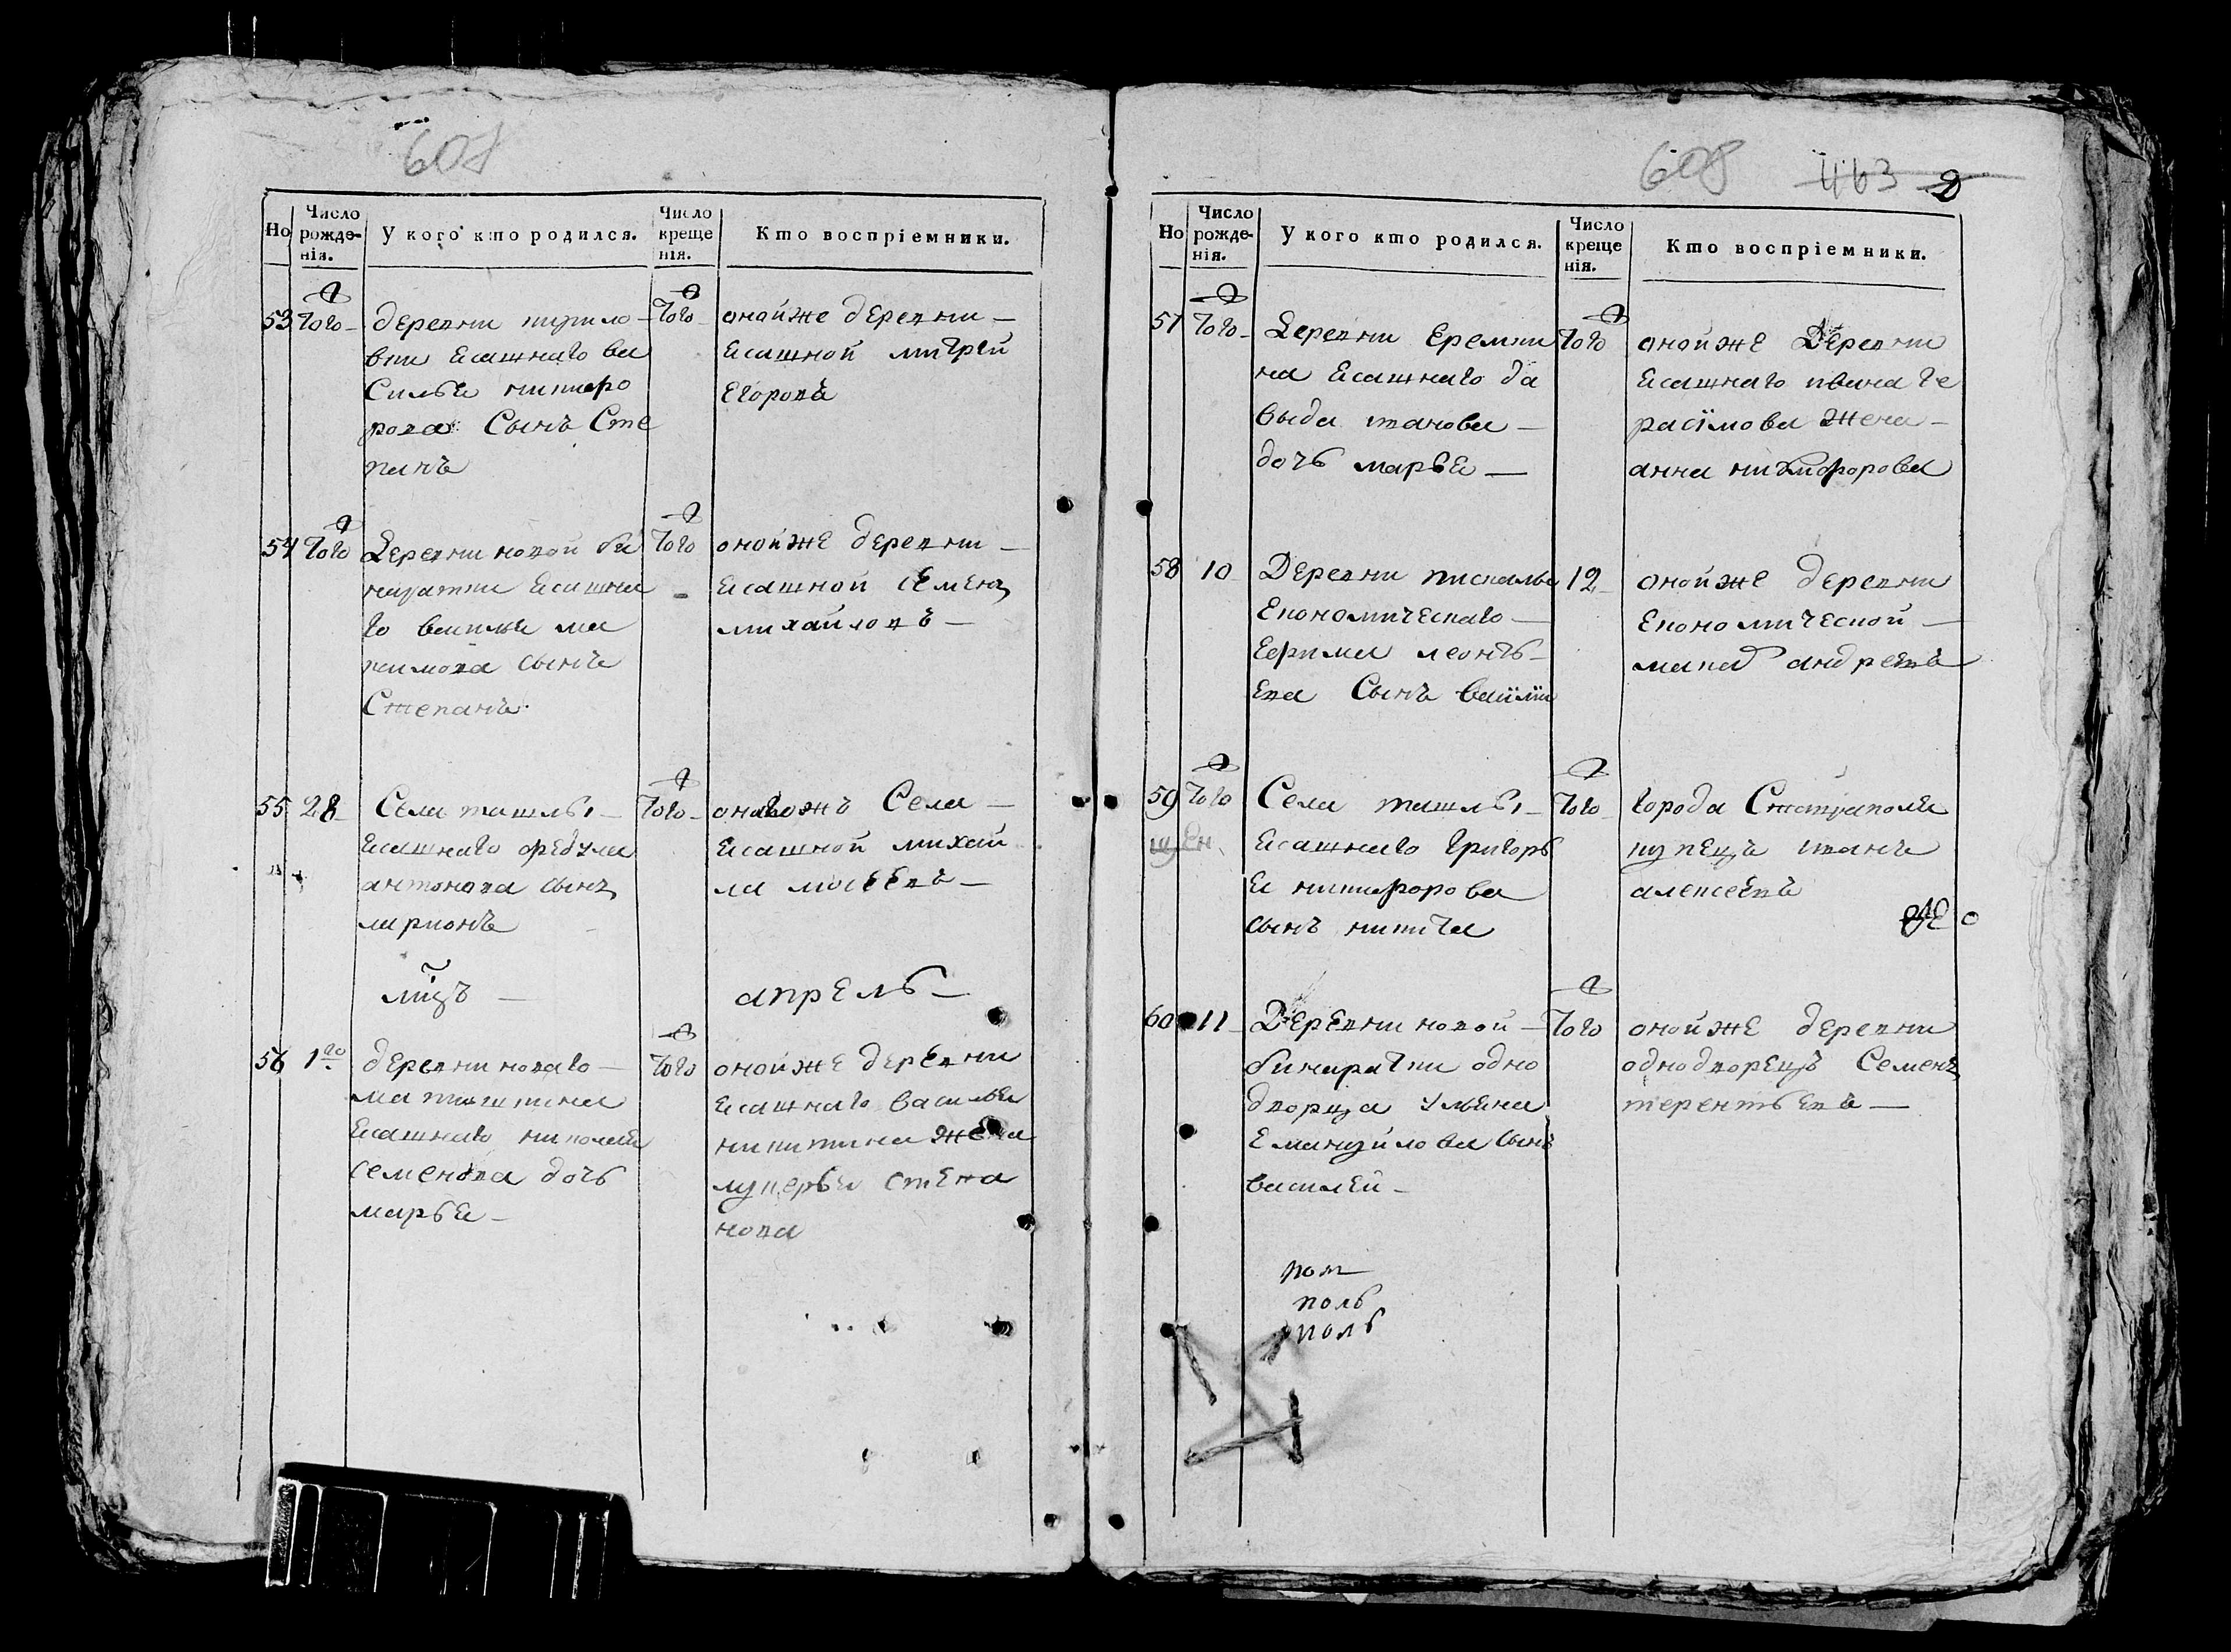 607
Но
Число рожденія.
У кого кто родился.
Число крещенія.
Кто воспріемники.
53
того
деревни курило
вки ясашнаго ва
силья никифо
рова сынъ Сте
панъ
того
онойже деревни
ясашной митрей
егоровъ
54
того
Деревни новой би
наратки ясашна
го василья ма
ксимова сынъ
Степанъ
того
онойже деревни
ясашной семенъ
михайловъ
55
28
Села ташлы
ясашнаго федула
антонова сынъ
ларионъ
того
оногожъ Села
ясашной михай
ла мосеевъ
мцъ
апрель
56
1го
деревни новаго
матюшкина
ясашнаго николая
семенова дочь
марья
того
онойже деревни
ясашнаго василья
никитина жена
лукерья степа
нова
608
463
Но
Число рожденія.
У кого кто родился.
Число крещенія.
Кто воспріемники.
57
того
Деревни еремки
на ясашнаго да
выда иванова
дочь марья
того
онойже Деревни
ясашнаго ивана ге
расимова жена
анна никифорова
58
10
Деревни пискалы
економическаго
ефима леонть
ева Сынъ василий
12
онойже деревни
економической
макаръ андреевъ
59
того
Села ташлы
ясашнаго григорь
я никифорова
сынъ никита
того
города Ставрополя
купецъ иванъ
алексеевъ
60
11
Деревни новой
бинаратки одно
дворца ульяна
емануйлова сынъ
василей
того
онойже деревни
однодворецъ Семенъ
терентьевъ
поль
поль